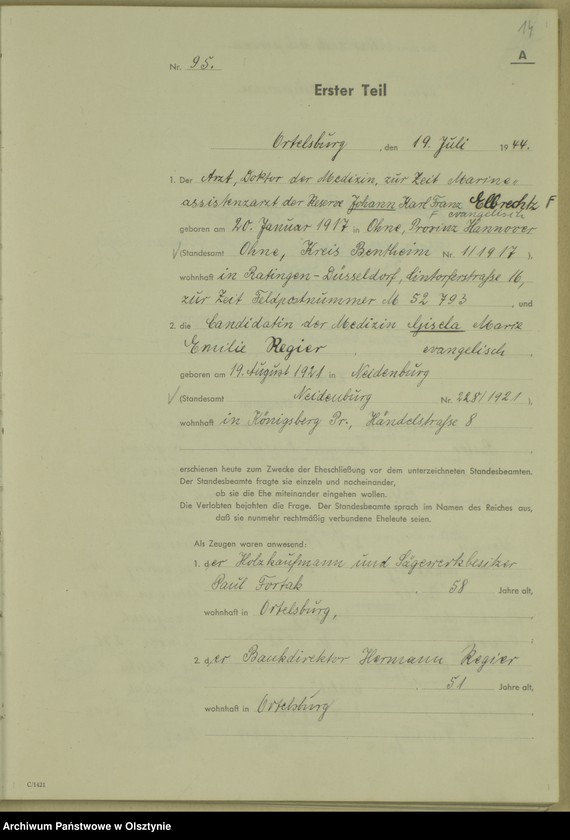 14
A
Nr. 95.
Erster Teil
Ortelsburg, den 19. Juli 1944.
1. Der Arzt, Doktor der Medizin, zur Zeit Marine-
assistenzarzt der Reserve Johann Karl Franz Elbrechtz F
F evangelisch
geboren am 20. Januar 1917 in Ohne, Provinz Hannover
(Standesamt Ohne, Kreis Bentheim Nr. 1/1917 ),
wohnhaft in Ratingen-Düsseldorf, Lintorferstraße 16,
zur Zeit Feldpostnummer M 52 793, und
2. die Candidatin der Medizin Gisela Marie
Emilie Regier evangelisch
geboren am 19. August 1921 in Neidenburg
(Standesamt Neidenburg Nr. 228/1921 ),
wohnhaft in Königsberg Pr., Händelstraße 8
erschienen heute zum Zwecke der Eheschließung vor dem unterzeichneten Standesbeamten.
Der Standesbeamte fragte sie einzeln und nacheinander,
ob sie die Ehe miteinander eingehen wollen.
Die Verlobten bejahten die Frage. Der Standesbeamte sprach im Namen des Reiches aus,
daß sie nunmehr rechtmäßig verbundene Eheleute seien.
Als Zeugen waren anwesend:
1. der Holzkaufmann und Sägewerksbesitzer
Paul Fortak 58 Jahre alt,
wohnhaft in Ortelsburg,
;
2. der Bankdirektor Hermann Regier
51 Jahre alt,
wohnhaft in Ortelsburg
C/1421
Archiwum Państwowe w Olsztynie